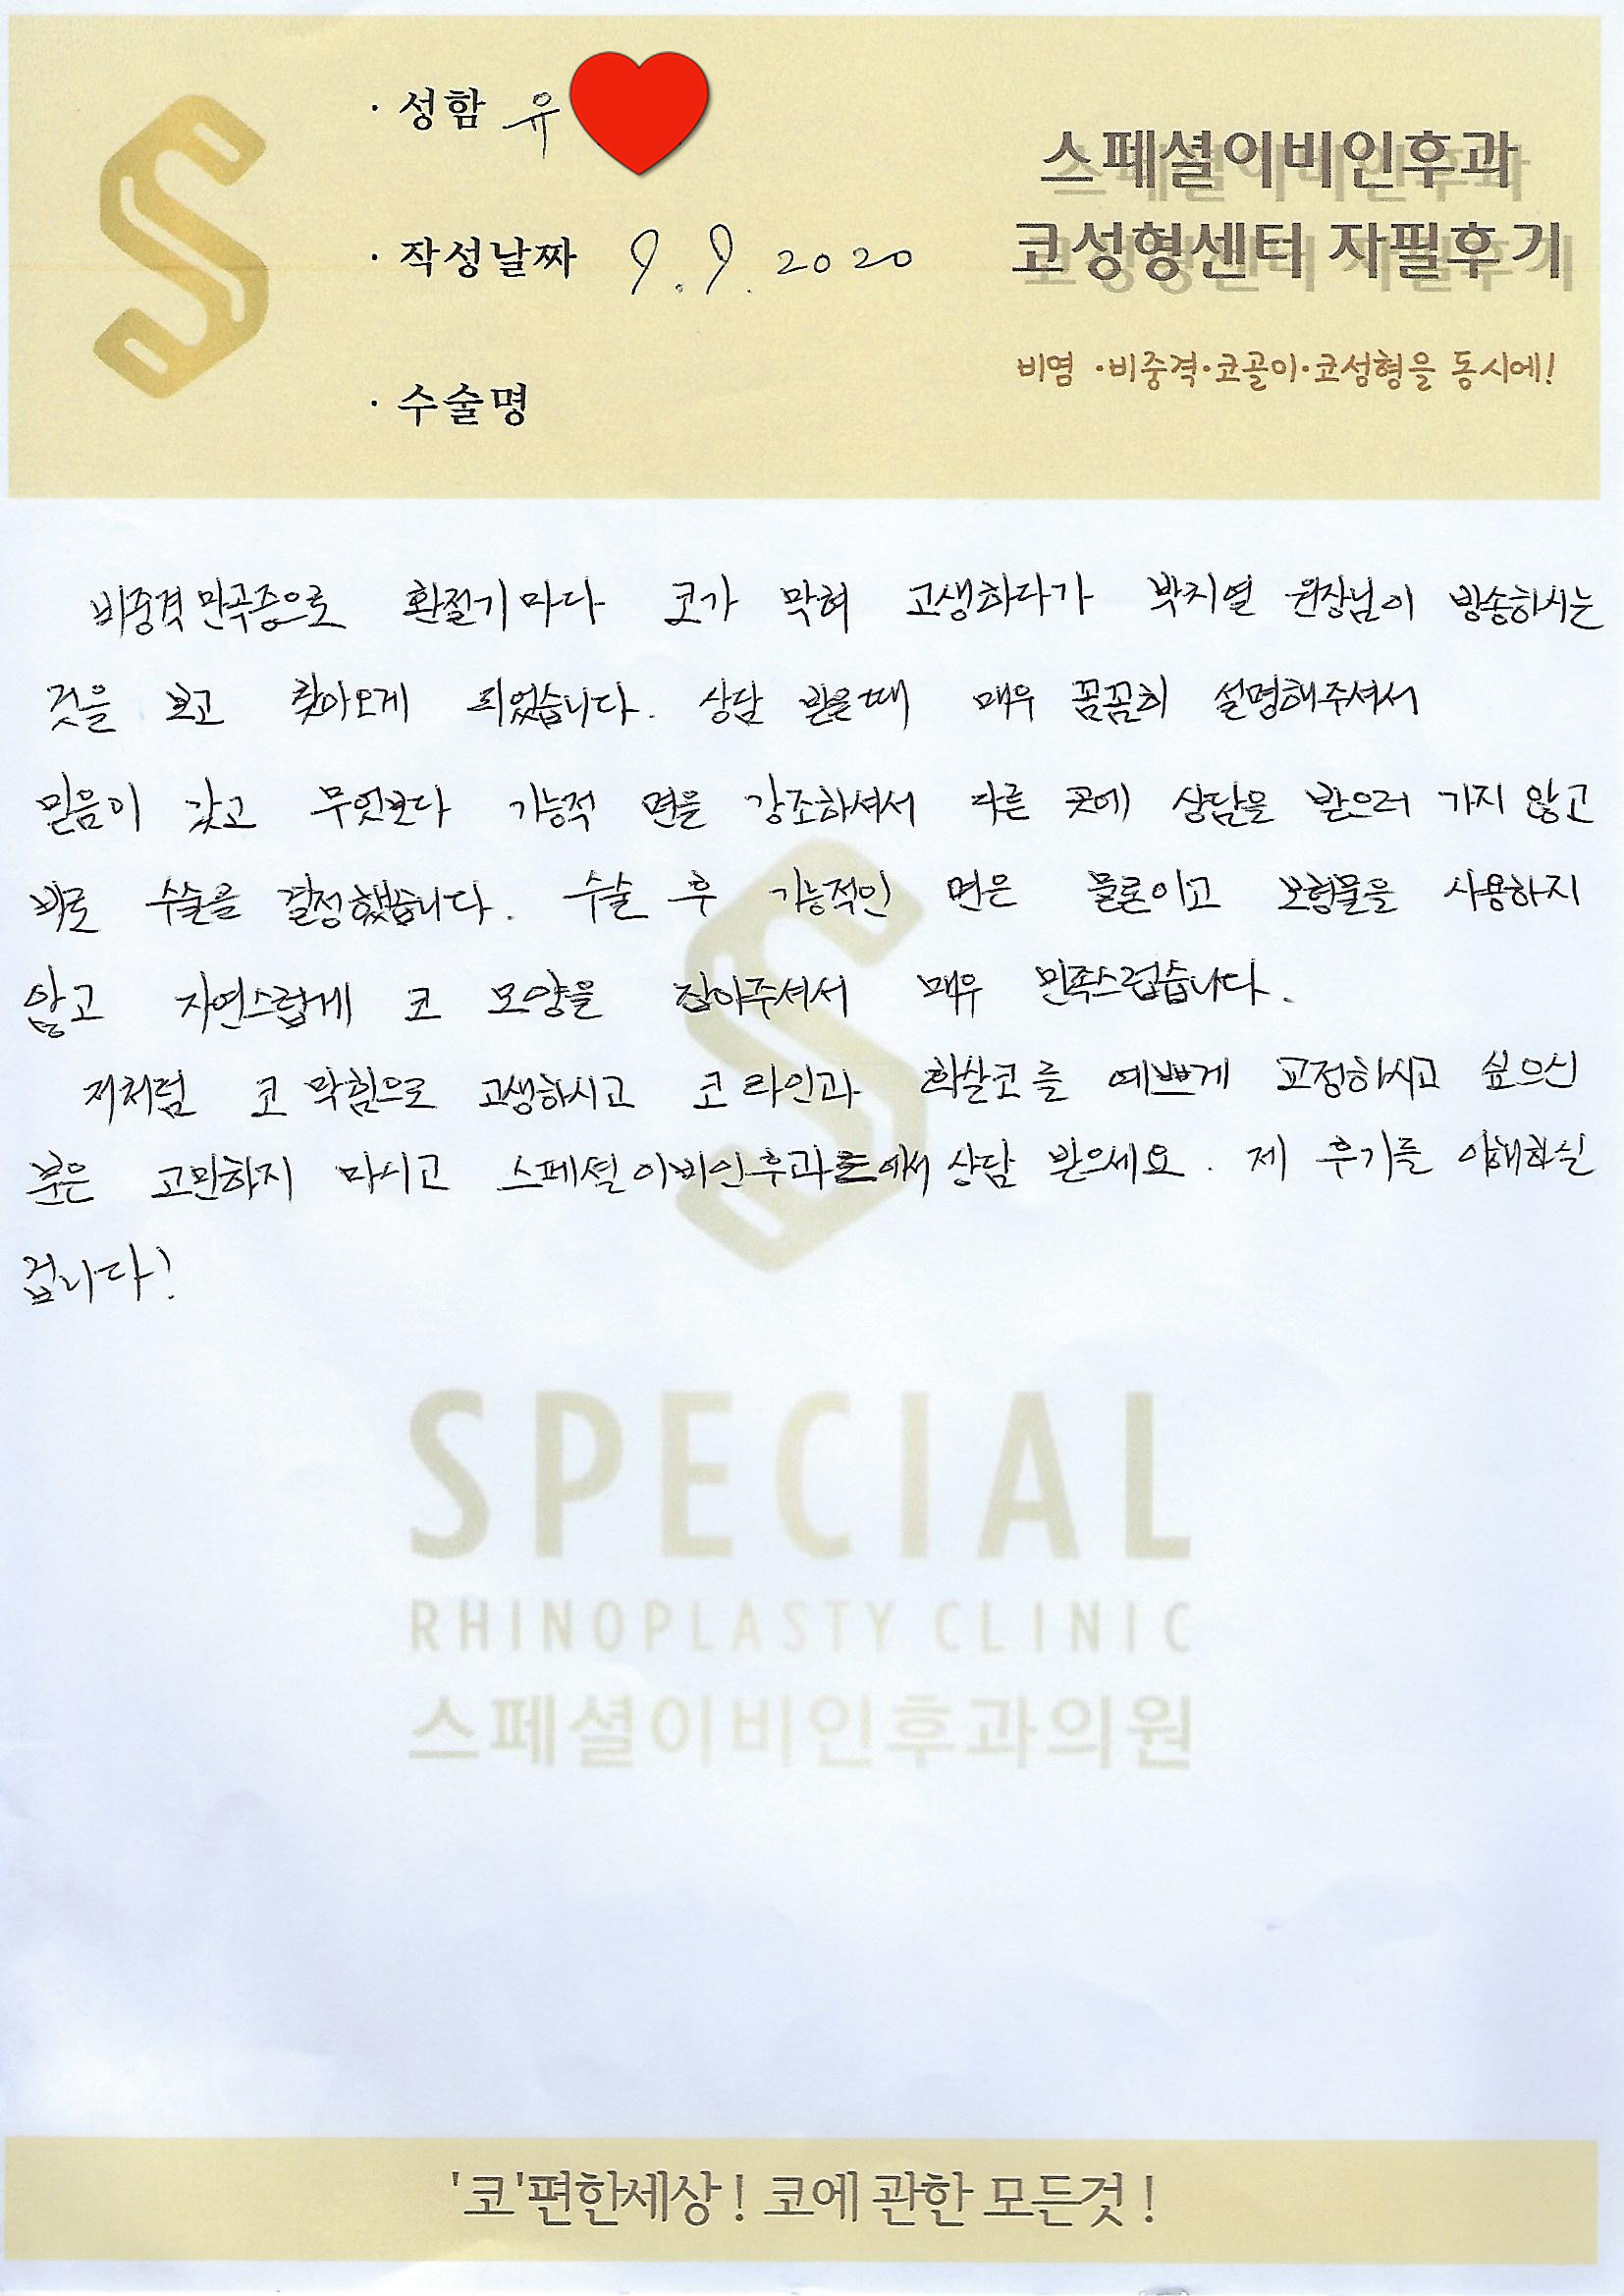 · 성함 유
스페셜이비인후과
· 작성날짜 9. 9. 2020
코성형센터 자필후기
비염 ·비중격·코골이·코성형을 동시에!
· 수술명
비중격만곡증으로 환절기마다 코가 막혀 고생하다가 박지열 원장님이 방송하시는
것을 보고 찾아오게 되었습니다. 상담 받을때 매우 꼼꼼히 설명해주셔서
믿음이 갔고 무엇보다 기능적 면을 강조하셔서 다른 곳에 상담을 받으러 가지 않고
바로 수술을 결정했습니다. 수술 후 기능적인 면은 물론이고 보형물을 사용하지
않고 자연스럽게 코 모양을 잡아주셔서 매우 만족스럽습니다.
저처럼 코 막힘으로 고생하시고 코 라인과 화살코를 예쁘게 교정하시고 싶으신
분은 고민하지 마시고 스페셜이비인후과에서 상담 받으세요. 제 후기를 이해하실
겁니다!
SPECIAL
RHINOPLASTY CLINIC
스페셜이비인후과의원
'코'편한세상! 코에 관한 모든것!